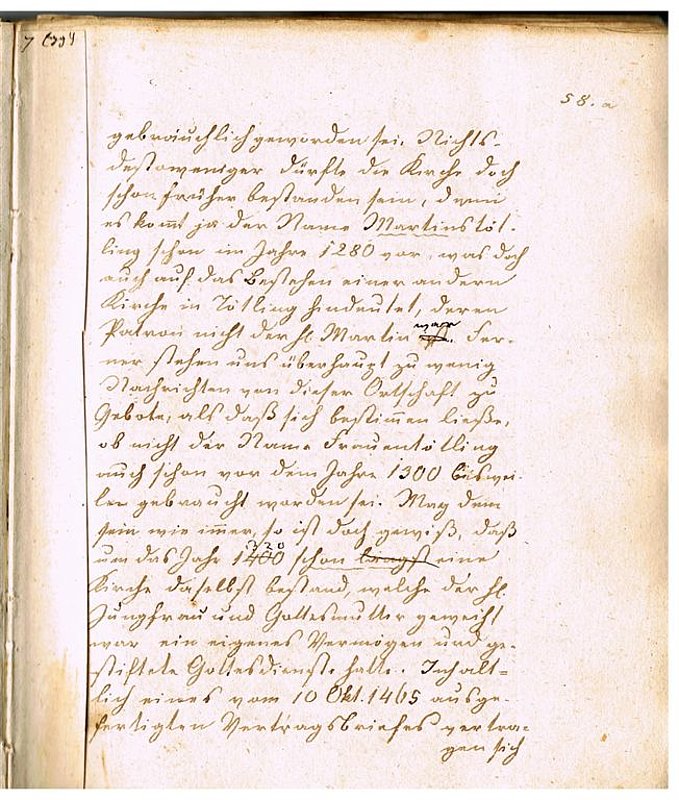 58. a
gebräuchlich geworden sei. Nichts-
destoweniger dürfte die Kirche doch
schon früher bestanden sein, denn
es kom̄t ja der Name Martinstöt-
ling schon im Jahre 1280 vor, was doch
auch auf das Bestehen einer andern
Kirche in Tötling hindeutet, deren
Patron nicht der hl. Martin war. Fer-
ner stehen uns überhaupt zu wenig
Nachrichten von dieser Ortschaft zu
Gebote, als daß sich bestim̄en ließe,
ob nicht der Name Frauentötling
auch schon vor dem Jahre 1300 biswei-
len gebraucht worden sei. Mag dem
sein wie immer, so ist doch gewiß, daß
um das Jahr 1400 schon längst eine
Kirche daselbst bestand, welche der hl.
Jungfrau und Gottesmutter geweiht
war ein eigenes Vermögen und ge-
stiftete Gottesdienste hatte. Inhalt-
lich eines vom 10 Okt. 1465 ausge-
fertigten Vertragsbriefes vertra-
gen sich